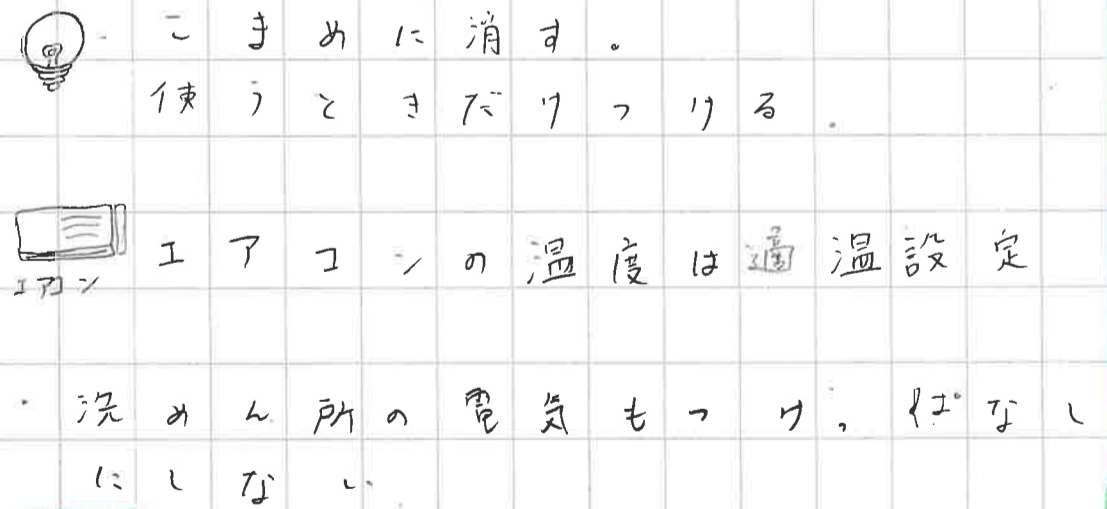 こまめに消す。
使うときだけつける.
エアコンの温度は適温設定
エアコン
・洗めん所の電気もつけっぱなし
にしない